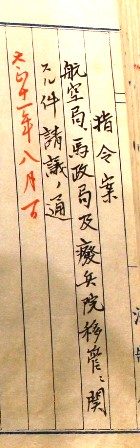 指令案
航空局、馬政局及癈兵院移管ニ関
スル件請議ノ通
大正十一年八月